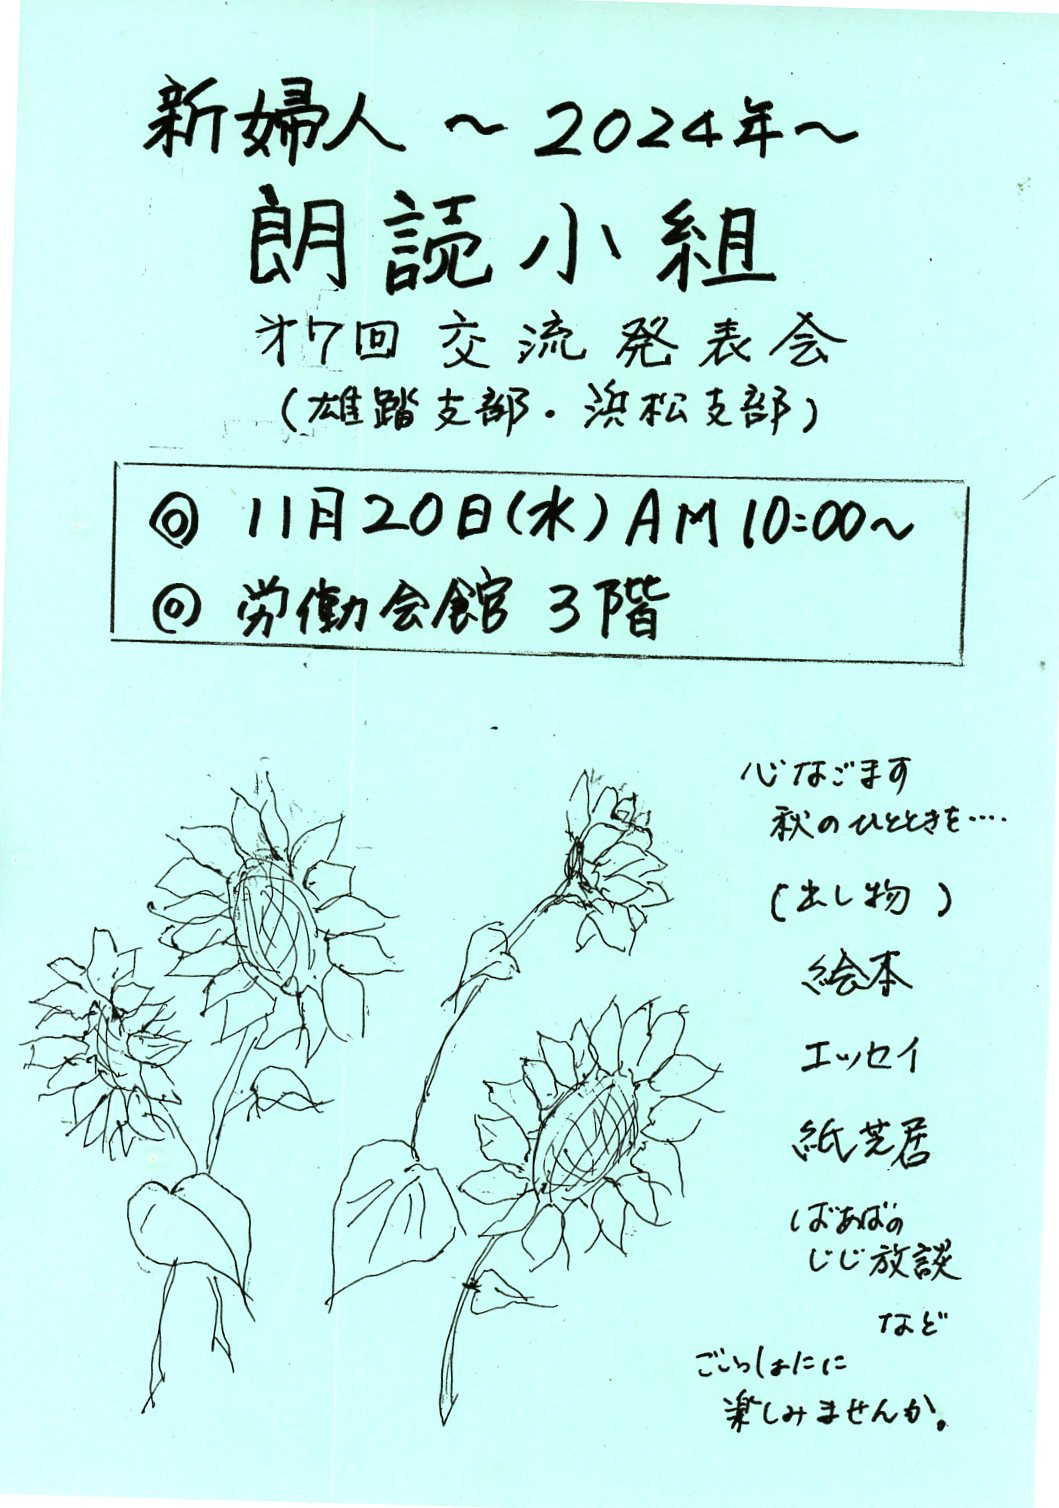 新婦人 ～2024年～
朗読小組
才7回 交流発表会
(雄踏支部・浜松支部)
◎ 11月20日(水) AM 10:00～
◎ 労働会館 3階
心なごます
秋のひとときを‥‥
(出し物)
絵本
エッセイ
紙芝居
ばあばの
じじ放談
など
ごいっしょに
楽しみませんか。